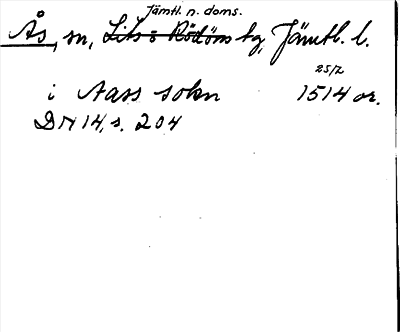 Jämtl. n. doms.
Ås, sn, Lits o Rödöns tg, Jämtl. l.
25/2
i Aass sokn 1514 or.
DN 14, s. 204